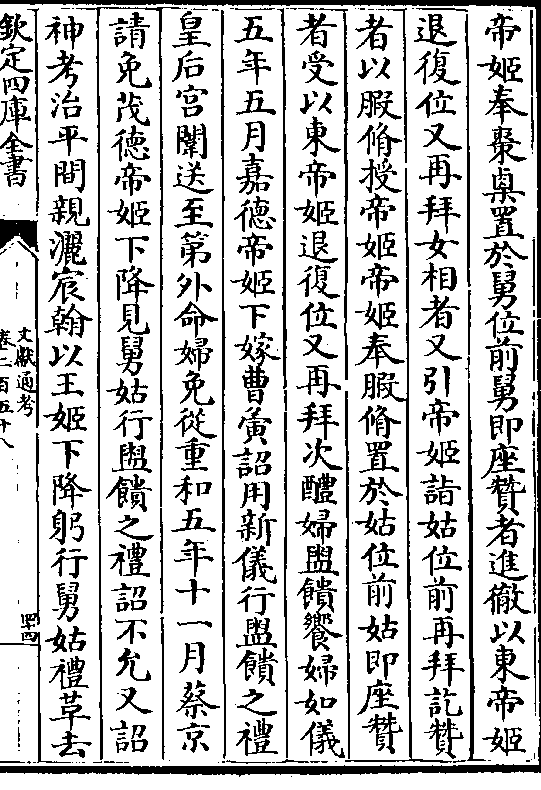 帝姬奉棗㮚置於舅位前舅即座贊者進徹以東帝姬
退復位又再拜女相者又引帝姬詣姑位前再拜訖贊
者以腶脩授帝姬帝姬奉腶脩置於姑位前姑即座贊
者受以東帝姬退復位又再拜次醴婦盥饋饗婦如儀
五年五月嘉德帝姬下嫁曹夤詔用新儀行盥饋之禮
皇后宫闈送至第外命婦免從重和五年十一月蔡京
請免茂德帝姬下降見舅姑行盥饋之禮詔不允又詔
神考治平間親灑宸翰以王姬下降躬行舅姑禮革去
欽定四庫全書
文獻通考
卷二百五十八
四十四